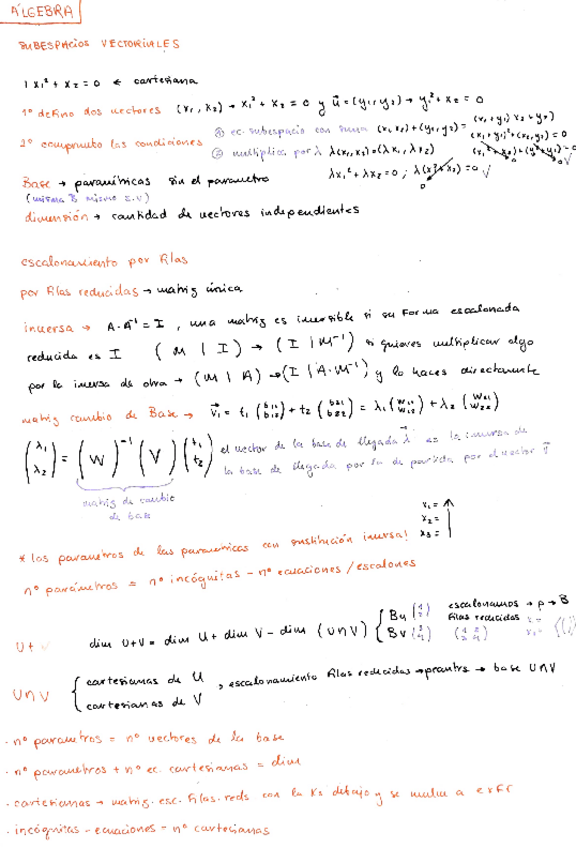 ÁLGEBRA
SUBESPACIOS VECTORIALES
x₁² + x₂ = 0 ← cartesiana
1º defino dos vectores (x₁, x₂) → x₁² + x₂ = 0 y ū = (y₁, y₂) → y₁² + x₂ = 0
2º compruebo las condiciones ① ec. subespacio con suma (x₁ x₂) + (y₁, y₂) = (x₁ + y₁) x₂ + y₂)
② multiplica por λ λ(x₁, x₂) = (λx₁, λx₂)
λx₁² + λx₂ = 0; λ(x₁² + x₂) = 0 ✓
Base → paramétricas sin el parametro
dimensión → cantidad de vectores independientes
escalonamiento por filas
por filas reducidas → matriz única
inversa → A·A⁻¹ = I, una matriz es inversible si su forma escalonada
reducida es I (M | I) → (I | M⁻¹) si quieres multiplicar algo
por la inversa de otra → (M | A) → (I | A·M⁻¹) y lo haces directamente
matriz cambio de Base → v⃗₁ = t₁ (b₁₁ b₁₂) + t₂ (b₂₁ b₂₂) = λ₁ (w₁₁ w₁₂) + λ₂ (w₂₁ w₂₂)
(λ₁ λ₂) = (W)⁻¹ (V) (t₁ t₂) el vector de la base de llegada λ⃗ es la inversa de
la base de llegada por la de partida por el vector t⃗
matriz de cambio
de base
x₁ =
x₂ =
x₃ =
* los parametros de las parametricas con sustitución inversa!
nº parámetros = nº incógnitas - nº ecuaciones / escalones
U + V dim U+V = dim U + dim V - dim (U∩V) { Bu Bv escalonamos → p → B
filas reducidas
U∩V { cartesianas de U
cartesianas de V , escalonamiento filas reducidas → → base U∩V
· nº parametros = nº vectores de la base
· nº parametros + nº ec. cartesianas = dim
· cartesianas → matriz. esc. filas. reds con la xs debajo y se
· incógnitas - ecuaciones = nº cartesianas